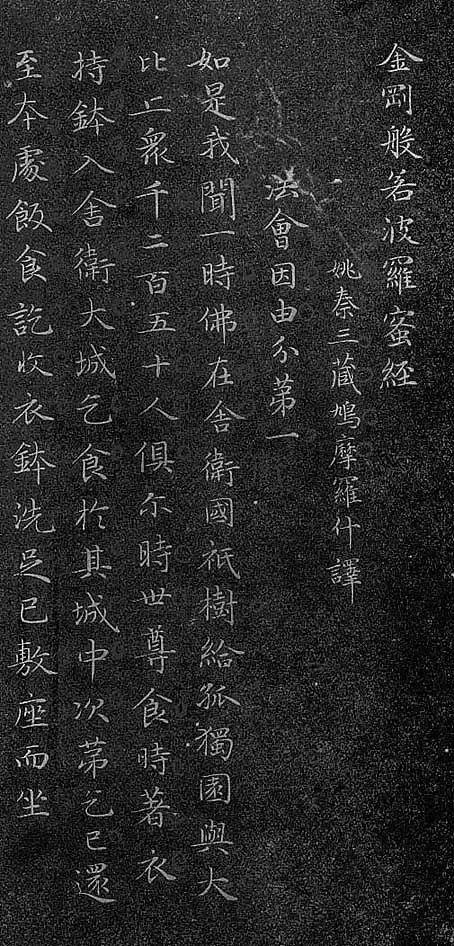 金剛般若波羅蜜経
姚秦三蔵鳩摩羅什譯
法會因由分第一
如是我聞一時佛在舍衛國祇樹給孤獨園與大
比丘眾千二百五十人俱尒時世尊食時著衣
持鉢入舍衛大城乞食扵其城中次苐乞已還
至本處飯食訖收衣鉢洗足已敷座而坐